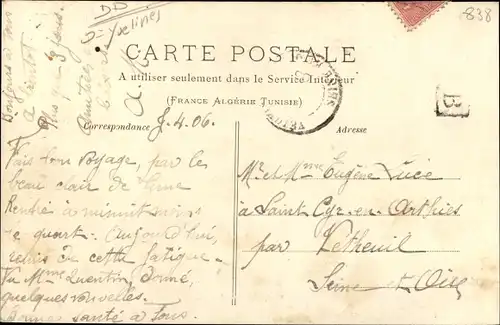 838
DD
S-Yvelines
Bonjours à tous
à bientôt
CARTE POSTALE
A utiliser seulement dans le Service Intérieur
(FRANCE ALGÉRIE TUNISIE)
B
Correspondance
Adresse
4.06.
Fais bon voyage, par le
beau clair de lune
Rentré à minuit moins
le quart. Aujourd'hui,
remis de cette fatigue.
Vu Mme Quentin, donné,
quelques nouvelles.
Bonne santé à Tous.
Mr et Mme Eugène Luce
à Saint Cyr-en-Arthies
par Vétheuil
Seine et Oise